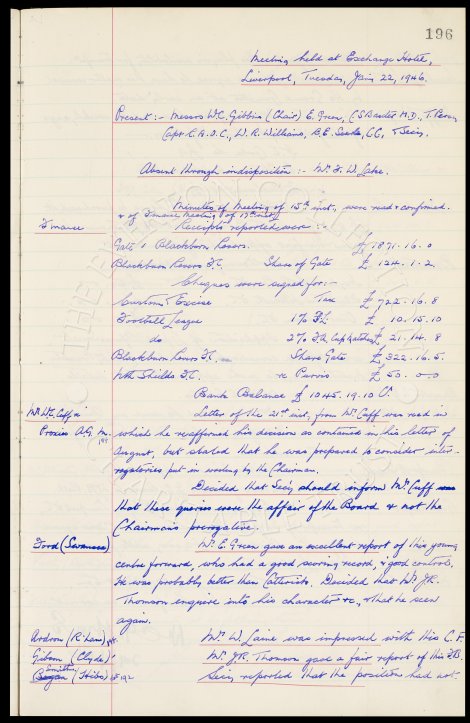 196
Meeting held at Exchange Hotel,
Liverpool, Tuesday, Jan 22, 1946.
Present :- Messrs W.C. Gibbins (Chair) E. Green, C.S. Baxter M.D., T. Percy,
Capt C.A.O.C., W.R. Williams, B.E. Searle, C.C, & Secy.
Absent through indisposition :- Mr. F. W. Lake.
Minutes of Meeting of 15th inst., were read & confirmed.
& of Finance Meeting of 17th inst
Finance Receipts reported were :-
Gate v Blackburn Rovers. £ 1871. 16. 0
Blackburn Rovers F.C. Share of Gate £ 124. 1. 2.
Cheques were signed for :-
Customs & Excise Tax £ 722. 16. 8
Football League 1% F.L. £ 10. 15. 10
do 2% F.L. Cup Matches £ 21. 14. 8
Blackburn Rovers F.C. Share Gate £ 322. 16. 5.
Nth Shields F.C. re Purvis £ 50. 0. 0
Bank Balance £ 1045. 19. 10 Cr.
Mr. W.C. Cuff & Letter of the 21st inst, from Mr. Cuff was read in
Proxies A.G. M. which he reaffirmed his decision as contained in his letter of
August, but stated that he was prepared to consider inter-
rogatories put in writing by the Chairman.
Decided that Secy should inform Mr. Cuff
that these queries were the affair of the Board & not the
Chairman's prerogative.
Ford (Swansea) Mr. E. Green gave an excellent report of this young
centre forward, who had a good scoring record, & good control.
He was probably better than Catterick. Decided that Mr. J.R.
Thomson enquire into his character &c., & that he be seen
again.
Mr. W. Laine was impressed with this C.F.
Gibson (Clyde) Mr. J.R. Thomson gave a fair report of this F.B.
Smith
(Hibs) Secy reported that the position had not